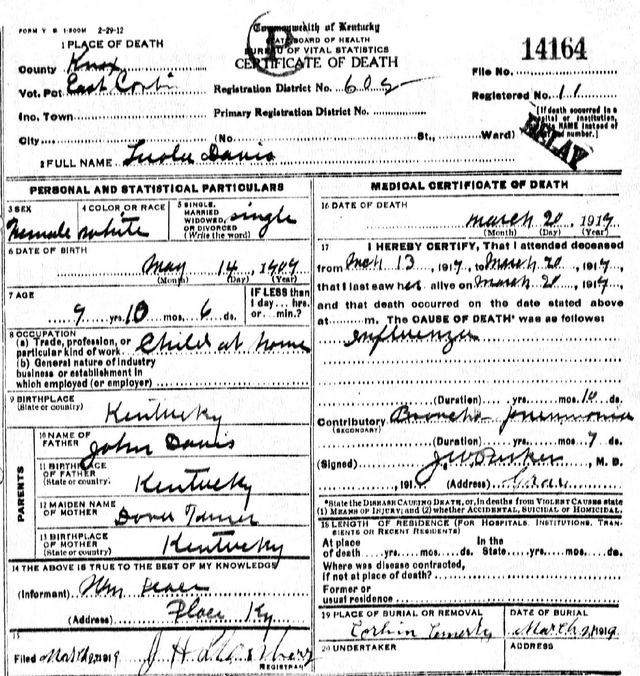 FORM V B 1-500M 2-29-12
Commonwealth of Kentucky
STATE BOARD OF HEALTH
BUREAU OF VITAL STATISTICS
CERTIFICATE OF DEATH
P
1 PLACE OF DEATH
County Knox
Vot. Pct East Corbin
Inc. Town
City (No. St., Ward)
Registration District No. 605
Primary Registration District No.
14164
File No.
Registered No. 11
[If death occurred in a
NAME instead of
number.]
DELAY
2 FULL NAME Davis
PERSONAL AND STATISTICAL PARTICULARS
3 SEX 4 COLOR OR RACE 5 SINGLE, MARRIED WIDOWED, OR DIVORCED (Write the word) single
Female white
6 DATE OF BIRTH
May 14, 1909
(Month) (Day) (Year)
7 AGE IF LESS than
9 yrs. 10 mos. 6 ds. 1 day... hrs. or min.?
8 OCCUPATION
(a) Trade, profession, or
particular kind of work Child at home
(b) General nature of industry
business or establishment in
which employed (or employer)
9 BIRTHPLACE
(State or country) Kentucky
PARENTS
10 NAME OF FATHER John Davis
11 BIRTHPLACE OF FATHER (State or country) Kentucky
12 MAIDEN NAME OF MOTHER
13 BIRTHPLACE OF MOTHER (State or country) Kentucky
14 THE ABOVE IS TRUE TO THE BEST OF MY KNOWLEDGE
(Informant) Wm
(Address) Place Ky
15
Filed 1919 J H
REGISTRAR
MEDICAL CERTIFICATE OF DEATH
16 DATE OF DEATH
March 20, 1919
(Month) (Day) (Year)
17 I HEREBY CERTIFY, That I attended deceased
from Mch 13, 1919, to March 20, 1919,
that I last saw her alive on March 20, 1919,
and that death occurred on the date stated above
at m. The CAUSE OF DEATH* was as follows:
Influenza
(Duration) yrs. mos. 10 ds.
Contributory Broncho pneumonia
(SECONDARY)
(Duration) yrs. mos. 7 ds.
(Signed) J W Parker, M. D.
, 191 (Address)
*State the DISEASE CAUSING DEATH, or, in deaths from VIOLENT CAUSES state
(1) MEANS OF INJURY; and (2) whether ACCIDENTAL, SUICIDAL or HOMICIDAL.
18 LENGTH OF RESIDENCE (FOR HOSPITALS, INSTITUTIONS, TRANSIENTS OR RECENT RESIDENTS)
At place In the
of death yrs. mos. ds. State yrs. mos. ds.
Where was disease contracted,
if not at place of death?
Former or
usual residence
19 PLACE OF BURIAL OR REMOVAL DATE OF BURIAL
Corbin March 21, 1919
20 UNDERTAKER ADDRESS